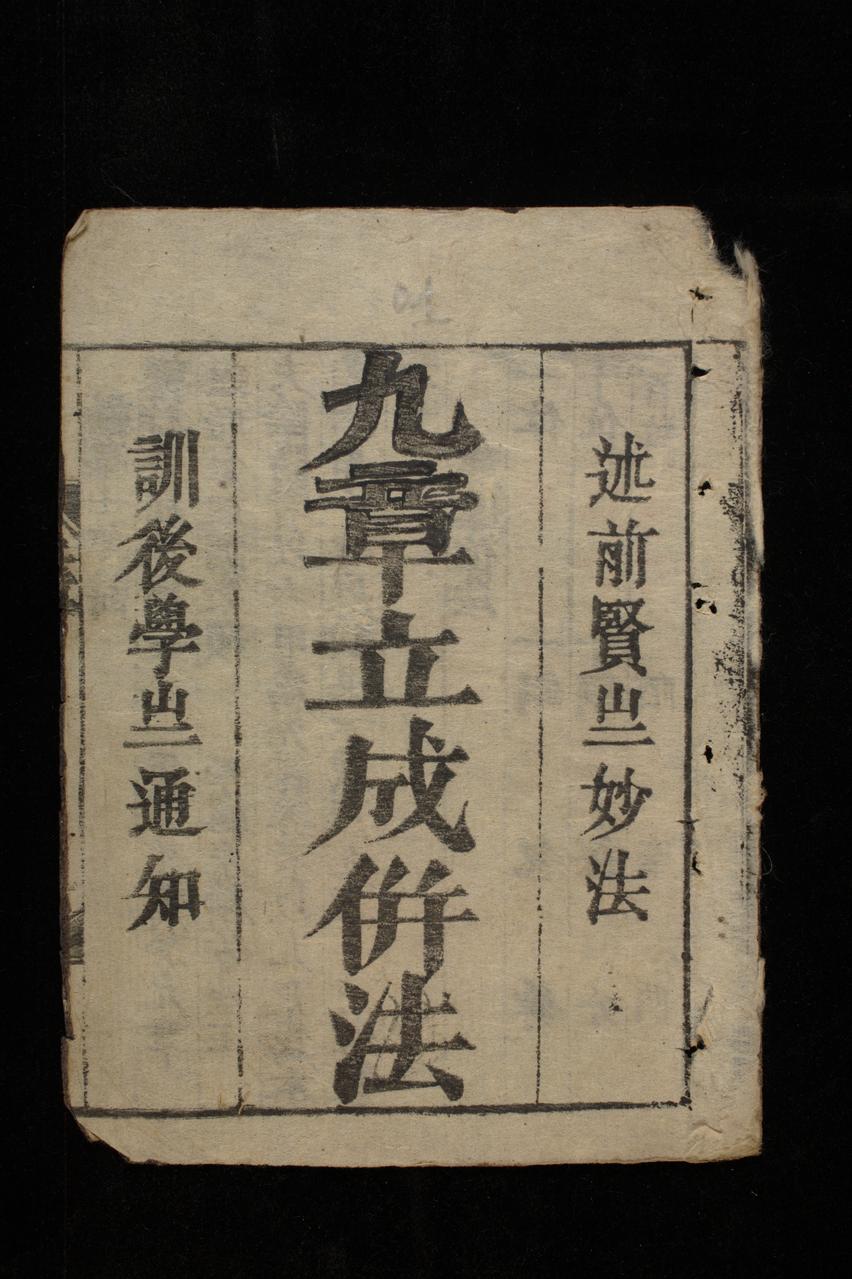 述前賢㞢玅法
九章立成併法
訓後學㞢通知